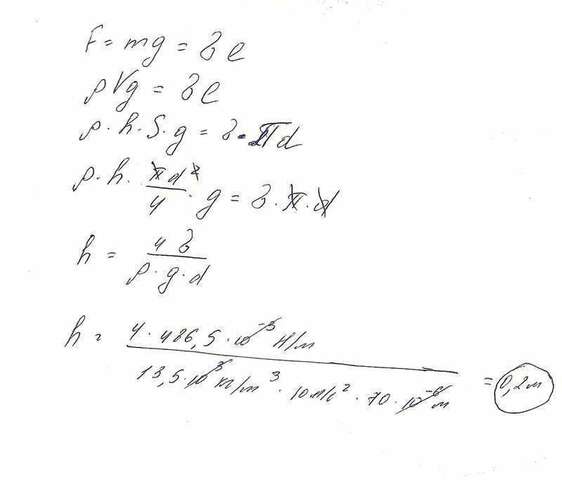 F = mg = δl
ρVg = δl
ρ·h·S·g = δ·πd
ρ·h· πd²/4 · g = δ·π·d
h = 4δ / ρ·g·d
h = 4·486,5·10⁻³ Н/м / 13,5·10³ кг/м³ · 10 м/с² · 70·10⁻⁶ м = 0,2 м